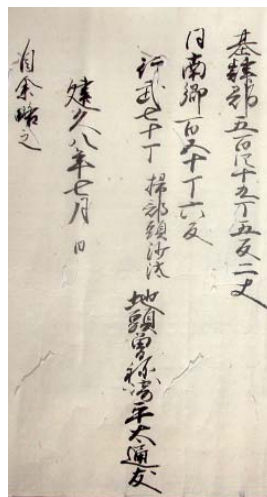 基肄郡五百四十九丁五反二丈
同南郷一百五十丁六反
行武七十丁 掃部頭沙汰 地頭曽祢崎平太通友
建久八年七月 日
自余略之